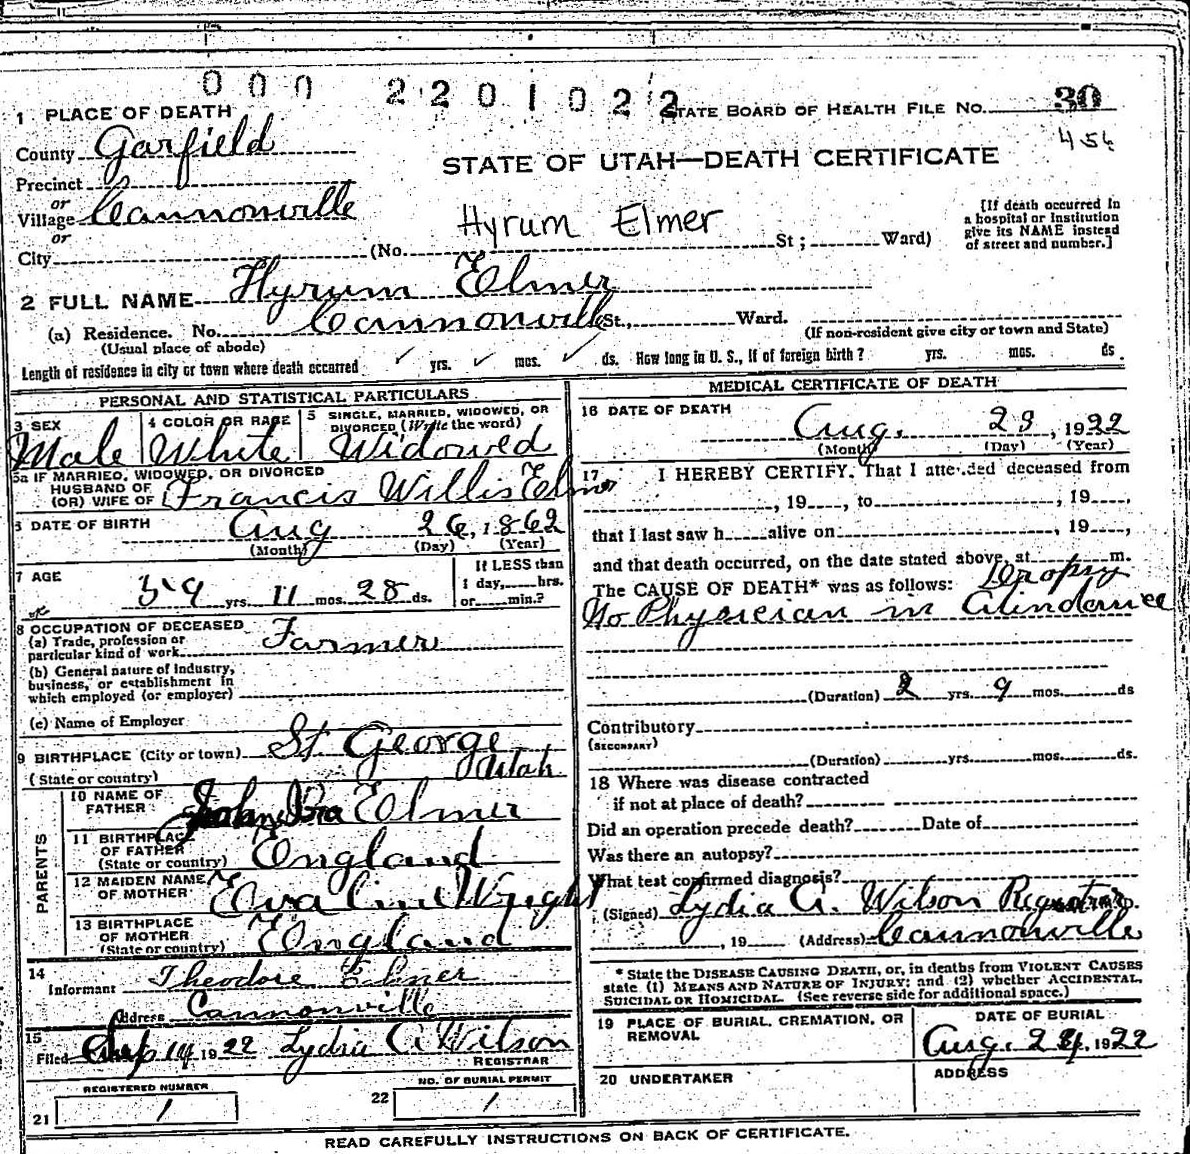 000 2201022
STATE BOARD OF HEALTH FILE NO. 30
456
1 PLACE OF DEATH
County Garfield
STATE OF UTAH—DEATH CERTIFICATE
Precinct
or
Village Cannonville
or
City
(No. Hyrum Elmer St; Ward)
[If death occurred in
a hospital or institution
give its NAME instead
of street and number.]
2 FULL NAME Hyrum Elmer
(a) Residence. No. Cannonville St., Ward.
(Usual place of abode)
(If non-resident give city or town and State)
Length of residence in city or town where death occurred ✓ yrs. ✓ mos. ✓ ds. How long in U. S., if of foreign birth? yrs. mos. ds.
PERSONAL AND STATISTICAL PARTICULARS
3 SEX
Male
4 COLOR OR RACE
White
5 SINGLE, MARRIED, WIDOWED, OR
DIVORCED (Write the word)
Widowed
5a IF MARRIED, WIDOWED, OR DIVORCED
HUSBAND OF
(OR) WIFE OF Francis Willis Elmer
6 DATE OF BIRTH Aug 26, 1862
(Month) (Day) (Year)
7 AGE
59 yrs. 11 mos. 28 ds.
If LESS than
1 day, hrs.
or min.?
8 OCCUPATION OF DECEASED
(a) Trade, profession or
particular kind of work Farmer
(b) General nature of industry,
business, or establishment in
which employed (or employer)
(c) Name of Employer
9 BIRTHPLACE (City or town) St George
(State or country) Utah
PARENTS
10 NAME OF
FATHER John Elmer
11 BIRTHPLACE
OF FATHER
(State or country) England
12 MAIDEN NAME
OF MOTHER Evaline Wright
13 BIRTHPLACE
OF MOTHER
(State or country) England
14
Informant Theodore Elmer
Address Cannonville
15
Filed Sep 14 1922 Lydia A. Wilson
REGISTRAR
REGISTERED NUMBER
21 1
NO. OF BURIAL PERMIT
22 1
MEDICAL CERTIFICATE OF DEATH
16 DATE OF DEATH
Aug. 23, 1922
(Month) (Day) (Year)
17 I HEREBY CERTIFY, That I attended deceased from
, 19 , to , 19 ,
that I last saw h alive on , 19 ,
and that death occurred, on the date stated above, at m.
The CAUSE OF DEATH* was as follows: Dropsy
No Physician in Attendance
(Duration) 2 yrs. 9 mos. ds
Contributory
(SECONDARY)
(Duration) yrs. mos. ds.
18 Where was disease contracted
if not at place of death?
Did an operation precede death? Date of
Was there an autopsy?
What test confirmed diagnosis?
(Signed) Lydia A. Wilson Registrar
, 19 (Address) Cannonville
* State the DISEASE CAUSING DEATH, or, in deaths from VIOLENT CAUSES
state (1) MEANS AND NATURE OF INJURY; and (2) whether ACCIDENTAL,
SUICIDAL OR HOMICIDAL. (See reverse side for additional space.)
19 PLACE OF BURIAL, CREMATION, OR
REMOVAL
DATE OF BURIAL
Aug. 24, 1922
20 UNDERTAKER
ADDRESS
READ CAREFULLY INSTRUCTIONS ON BACK OF CERTIFICATE.